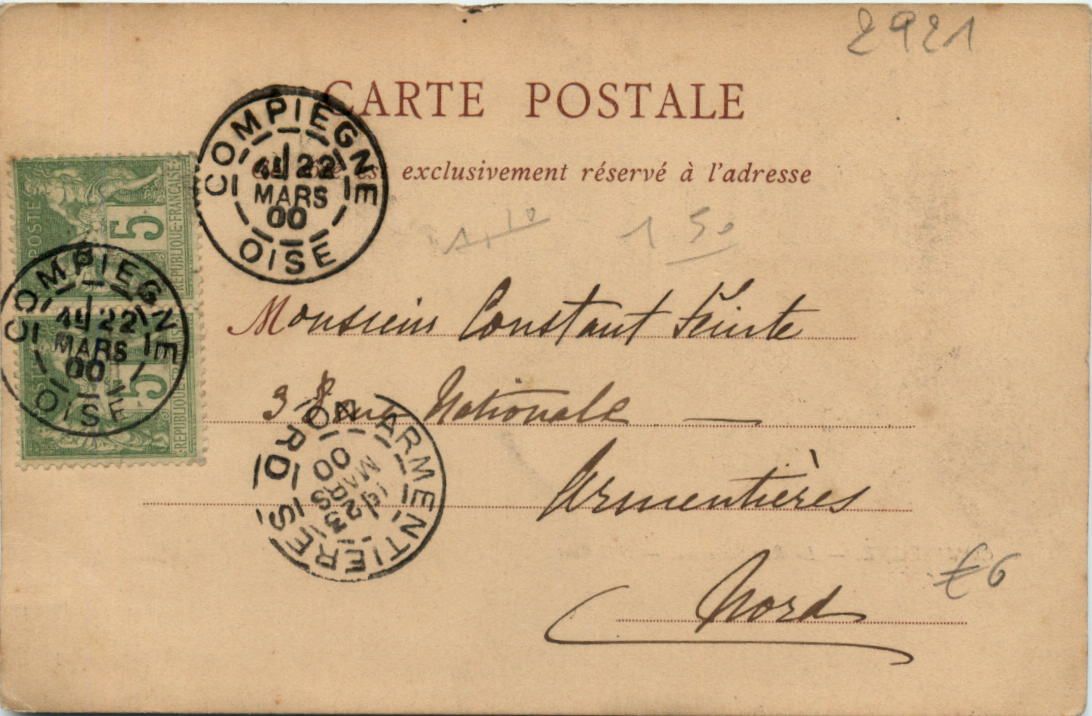 2921
CARTE POSTALE
exclusivement réservé à l'adresse
COMPIEGNE
22
MARS
00
OISE
POSTES
5
REPUBLIQUE FRANÇAISE
COMPIEGNE
22
MARS
00
OISE
5
REPUBLIQUE FRANÇAISE
1,10
1 50
Monsieur Constant
3 Rue Nationale
ARMENTIERES
23
MARS
00
NORD
Armentières
€6
Nord